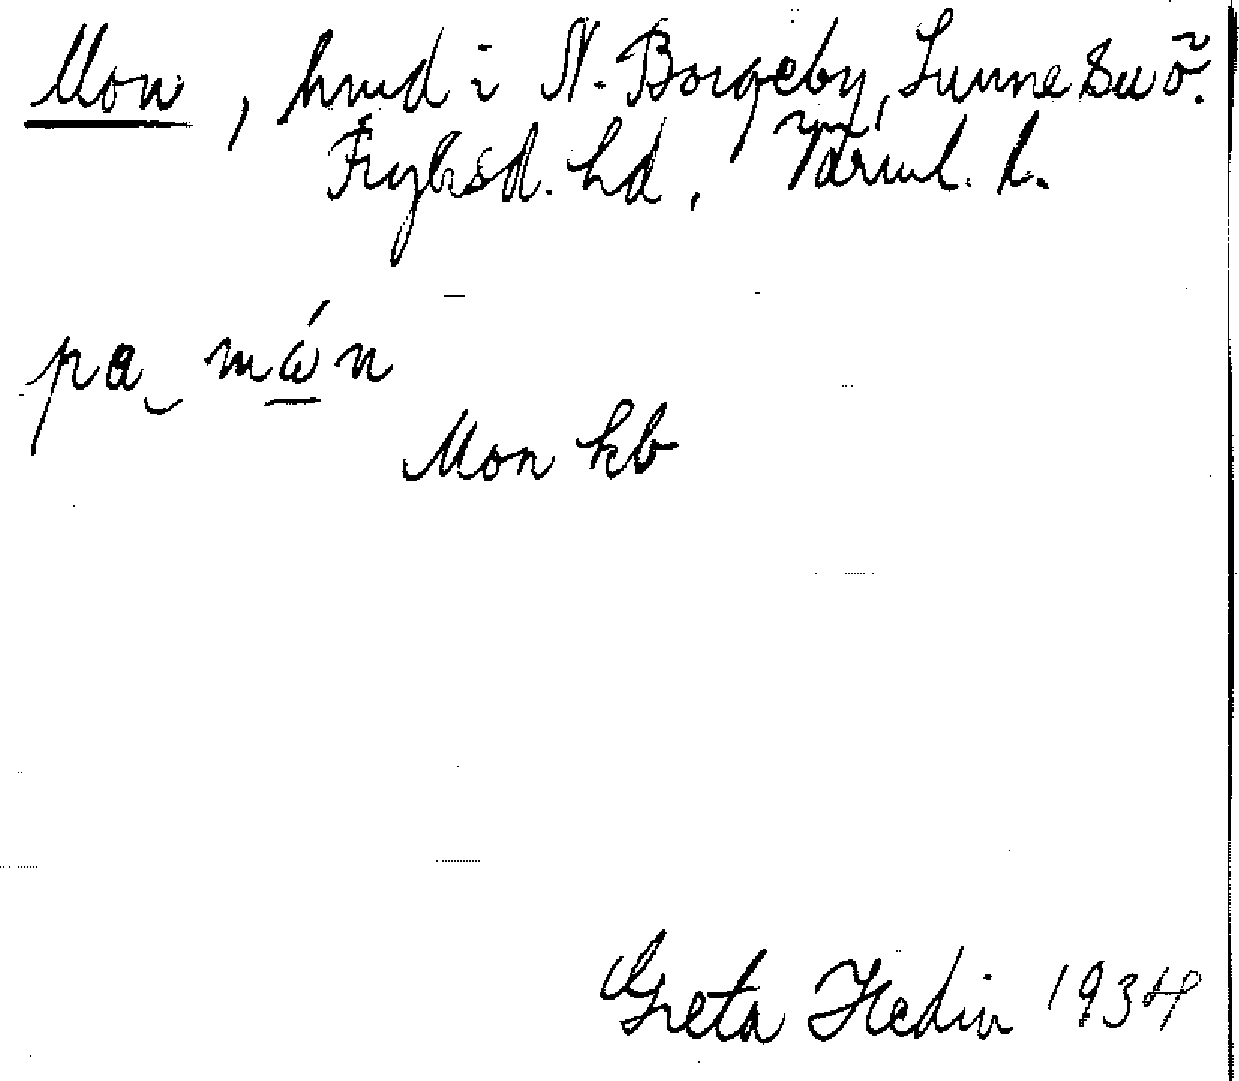 Mon, hmd i N. Borgeby, Sunne sn o.
Fryksd. hd, Värml. l.
pa mώn
Mon kb
Greta Hedin 1934